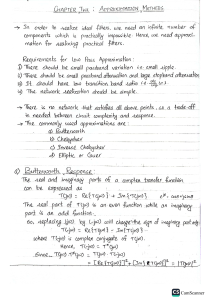 CHAPTER TWO : APPROXIMATION METHODS
→ In order to realize ideal filters, we need an infinite number of
components which is practically impossible. Hence, we need approxi-
mation for realizing practical filters.
Requirements for Low Pass Approximation:
1) There should be small passband variation i.e. small ripple.
2) There should be small passband attenuation and large stopband attenuation
3) It should have low transition band ratio
4) The network realization should be simple.
→ There is no network that satisfies all above points, so a trade off
is needed between circuit complexity and response.
→ The commonly used approximations are:
a) Butterworth
b) Chebyshev
c) Inverse Chebyshev
d) Elliptic or Cauer
a) Butterworth Response:
The real and imaginary parts of a complex transfer function
can be expressed as
T(jω) = Re{T(jω)} + j Im{T(jω)}
The real part of T(jω) is an even function while an imaginary
part is an odd function.
So, replacing (jω) by (-jω) will change the sign of imaginary part only.
T(-jω) = Re{T(jω)} - j Im{T(jω)}
where T(-jω) is complex conjugate of T(jω).
Hence, T(-jω) = T*(jω)
Since, T(jω) T*(jω) = T(jω) . T(-jω)
= [Re{T(jω)}]² + [Im{T(jω)}]² = |T(jω)|²
CS CamScanner